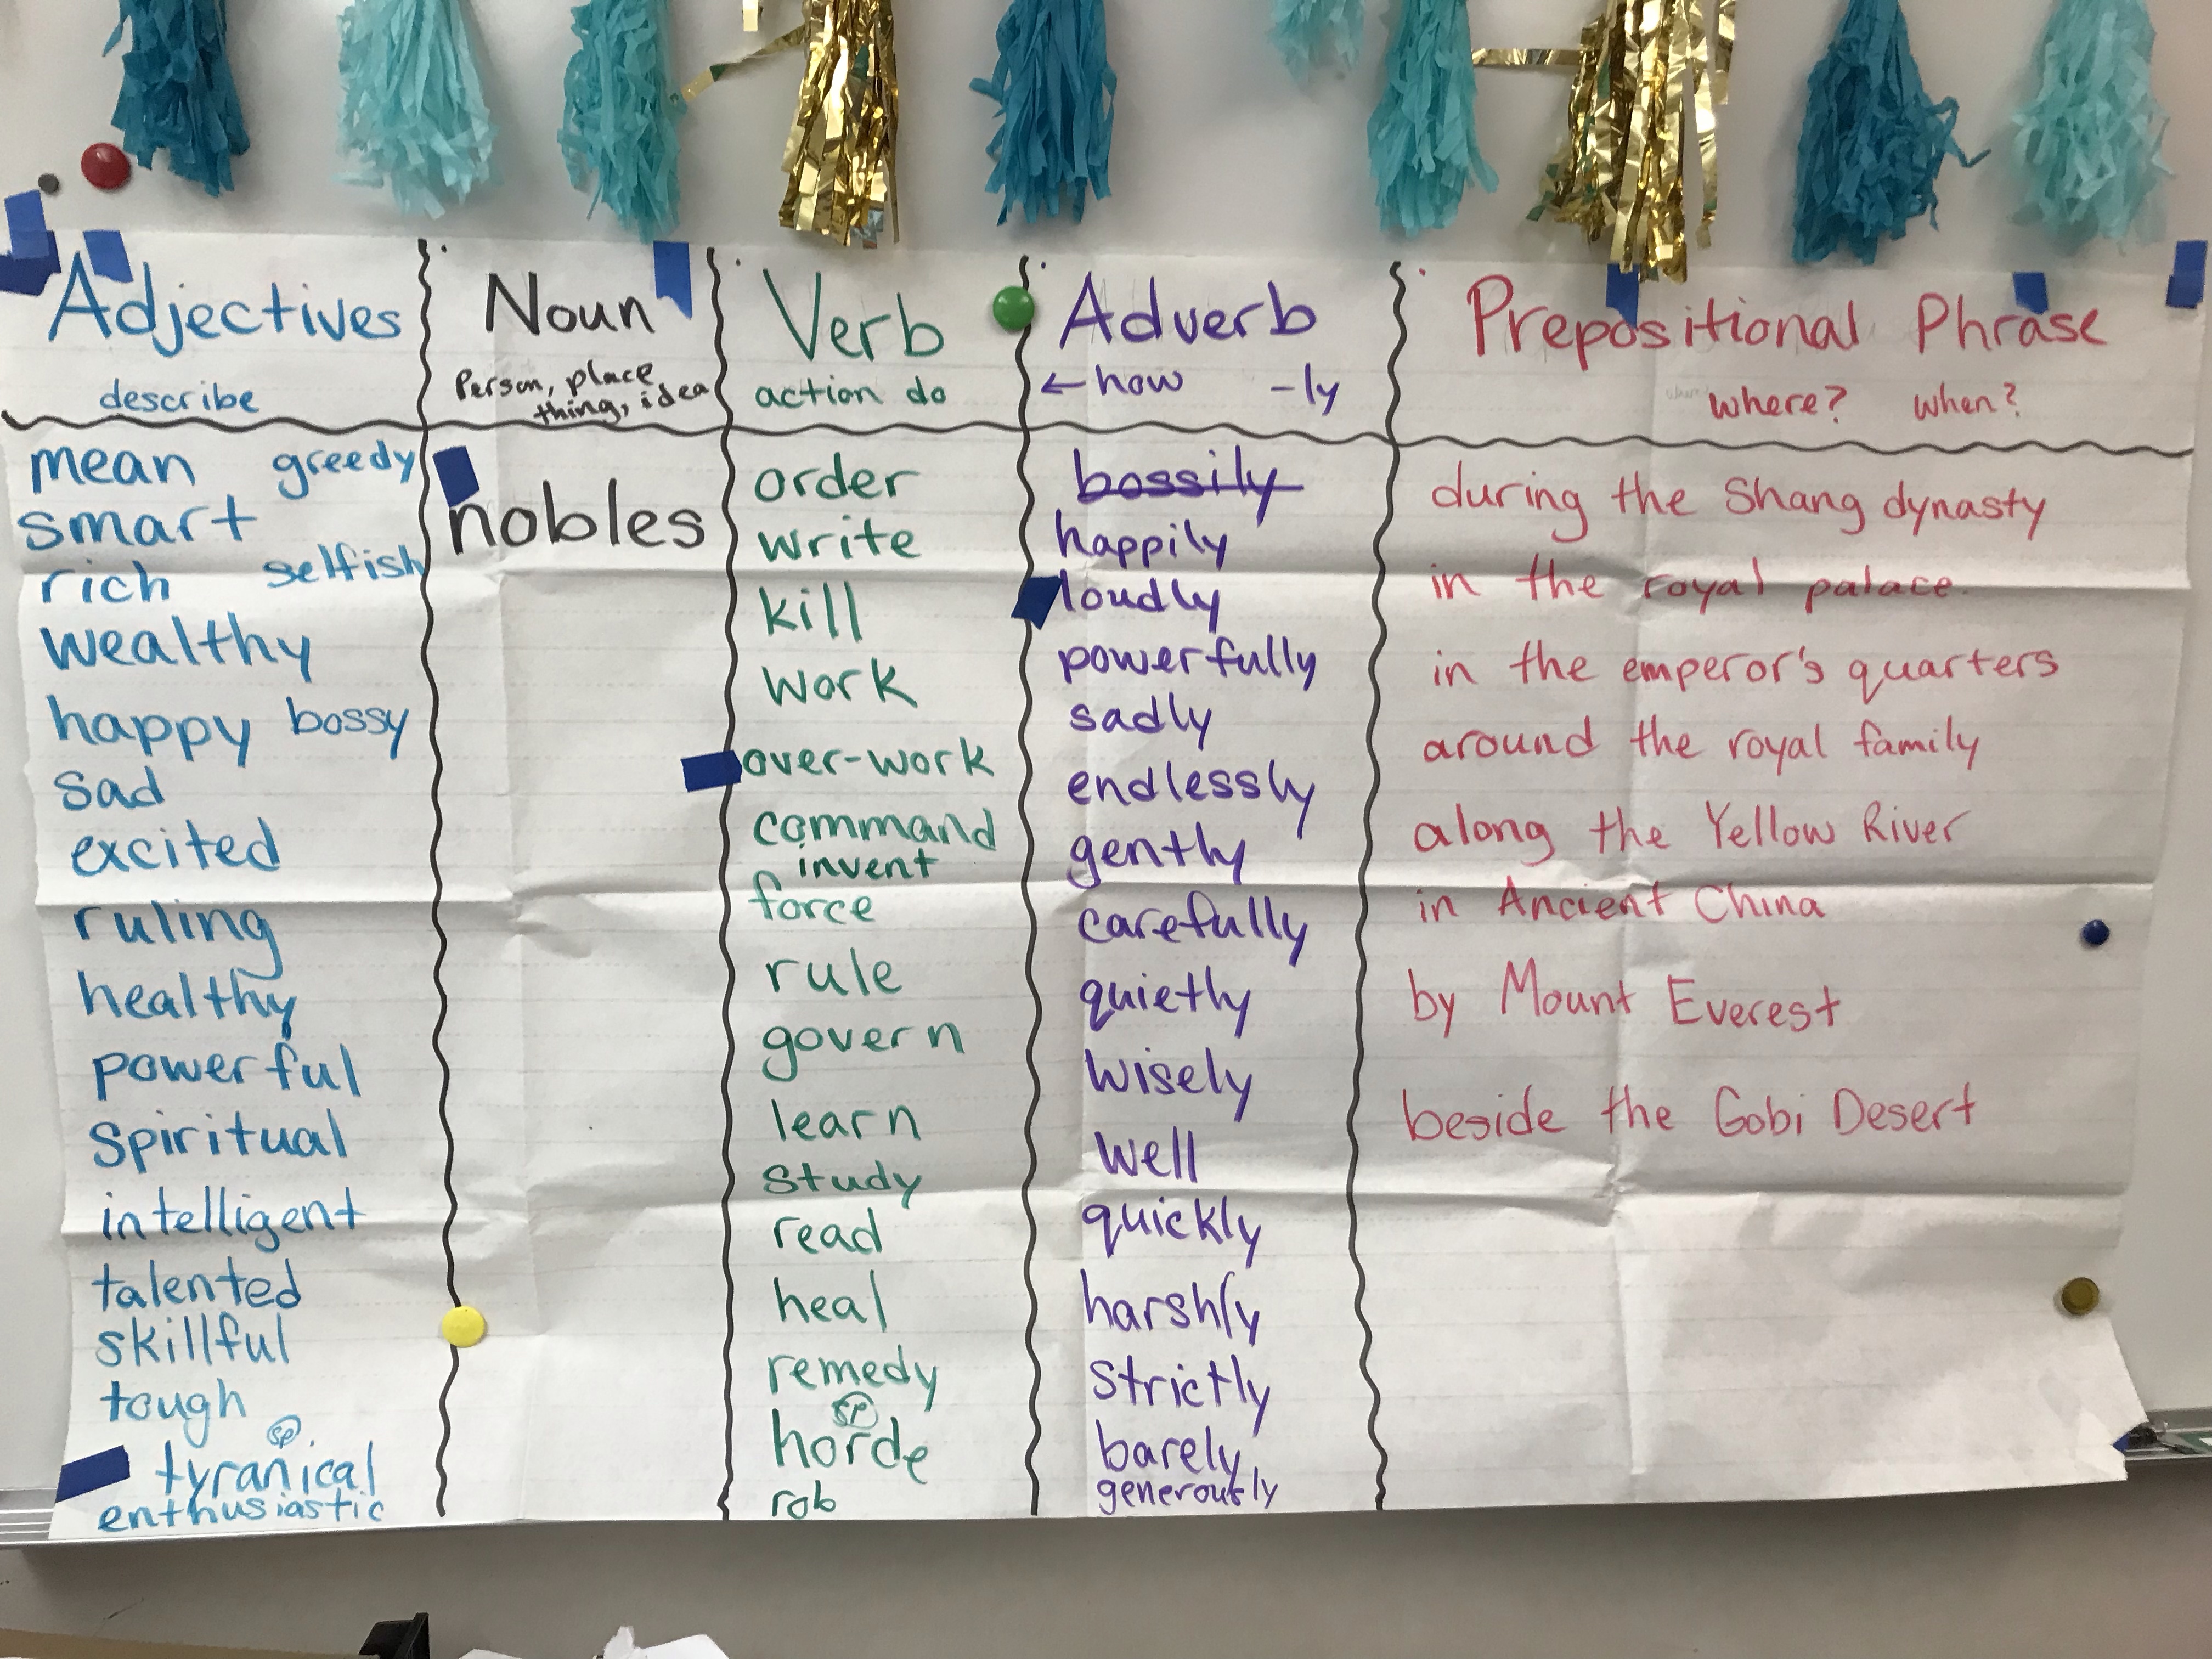 Adjectives
describe
mean greedy
smart
rich selfish
wealthy
happy bossy
sad
excited
ruling
healthy
powerful
Spiritual
intelligent
talented
skillful
tough
sp
tyranical
enthusiastic
Noun
Person, place
thing, idea
nobles
Verb
action do
order
write
kill
work
over-work
command
invent
force
rule
govern
learn
study
read
heal
remedy
sp
horde
rob
Adverb
←how -ly
bossily
happily
loudly
powerfully
sadly
endlessly
gently
carefully
quietly
wisely
well
quickly
harshly
strictly
barely
generously
Prepositional Phrase
where? when?
during the Shang dynasty
in the royal palace.
in the emperor's quarters
around the royal family
along the Yellow River
in Ancient China
by Mount Everest
beside the Gobi Desert